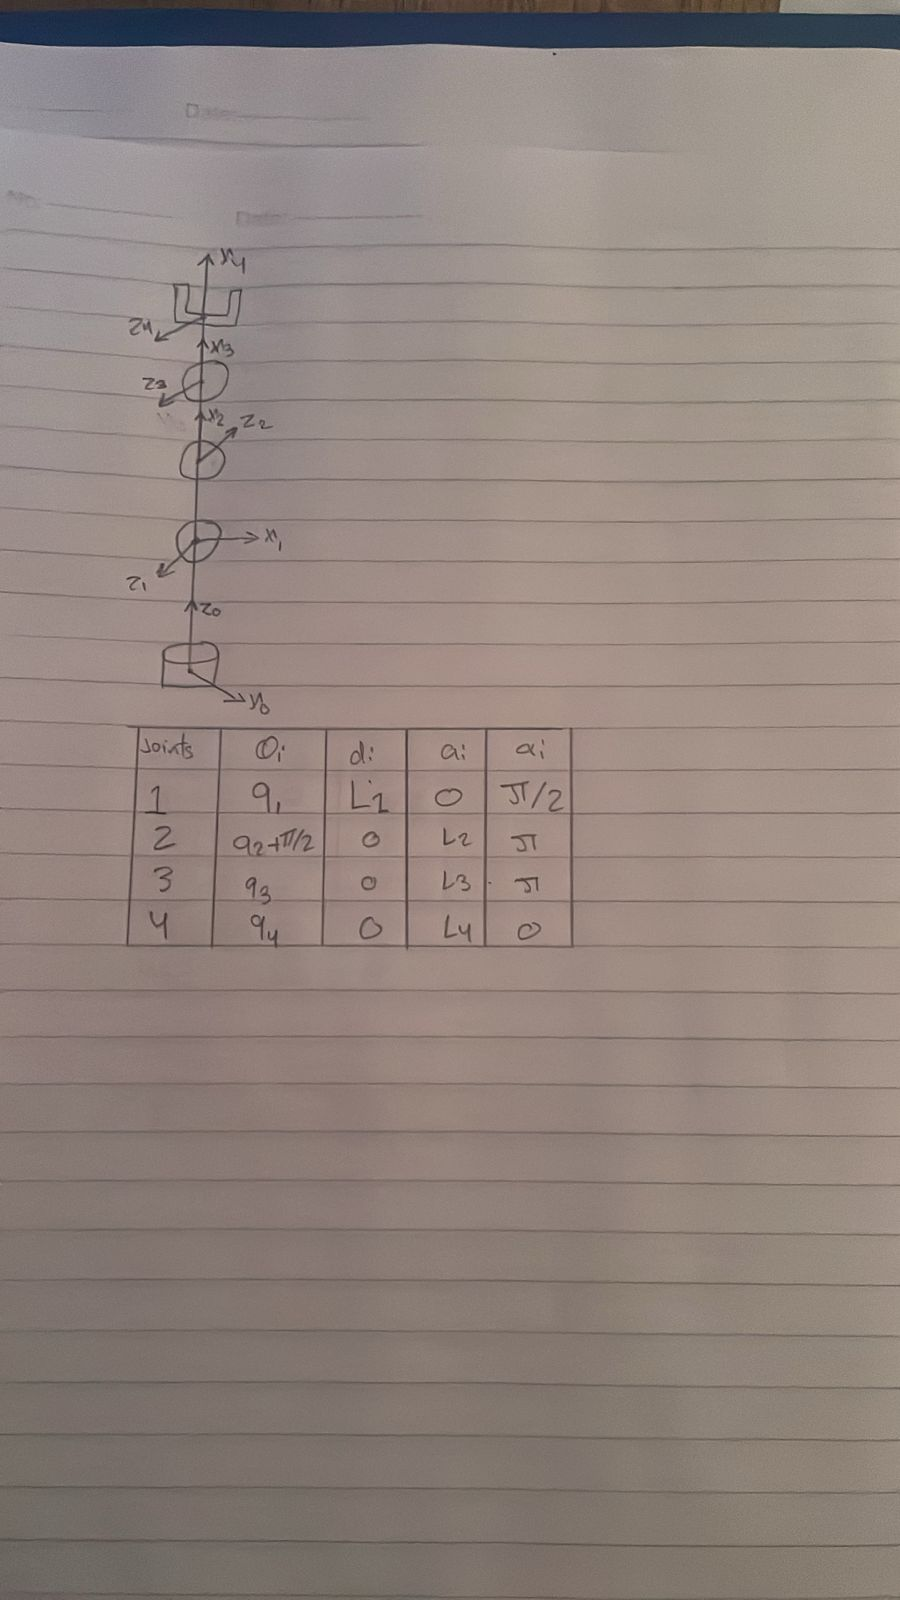 Date:
No.
Date:
x4
z4
x3
z3
x2 z2
x1
z1
z0
x0
Joints θi di ai αi
1 q1 L1 0 π/2
2 q2+π/2 0 L2 π
3 q3 0 L3 π
4 q4 0 L4 0